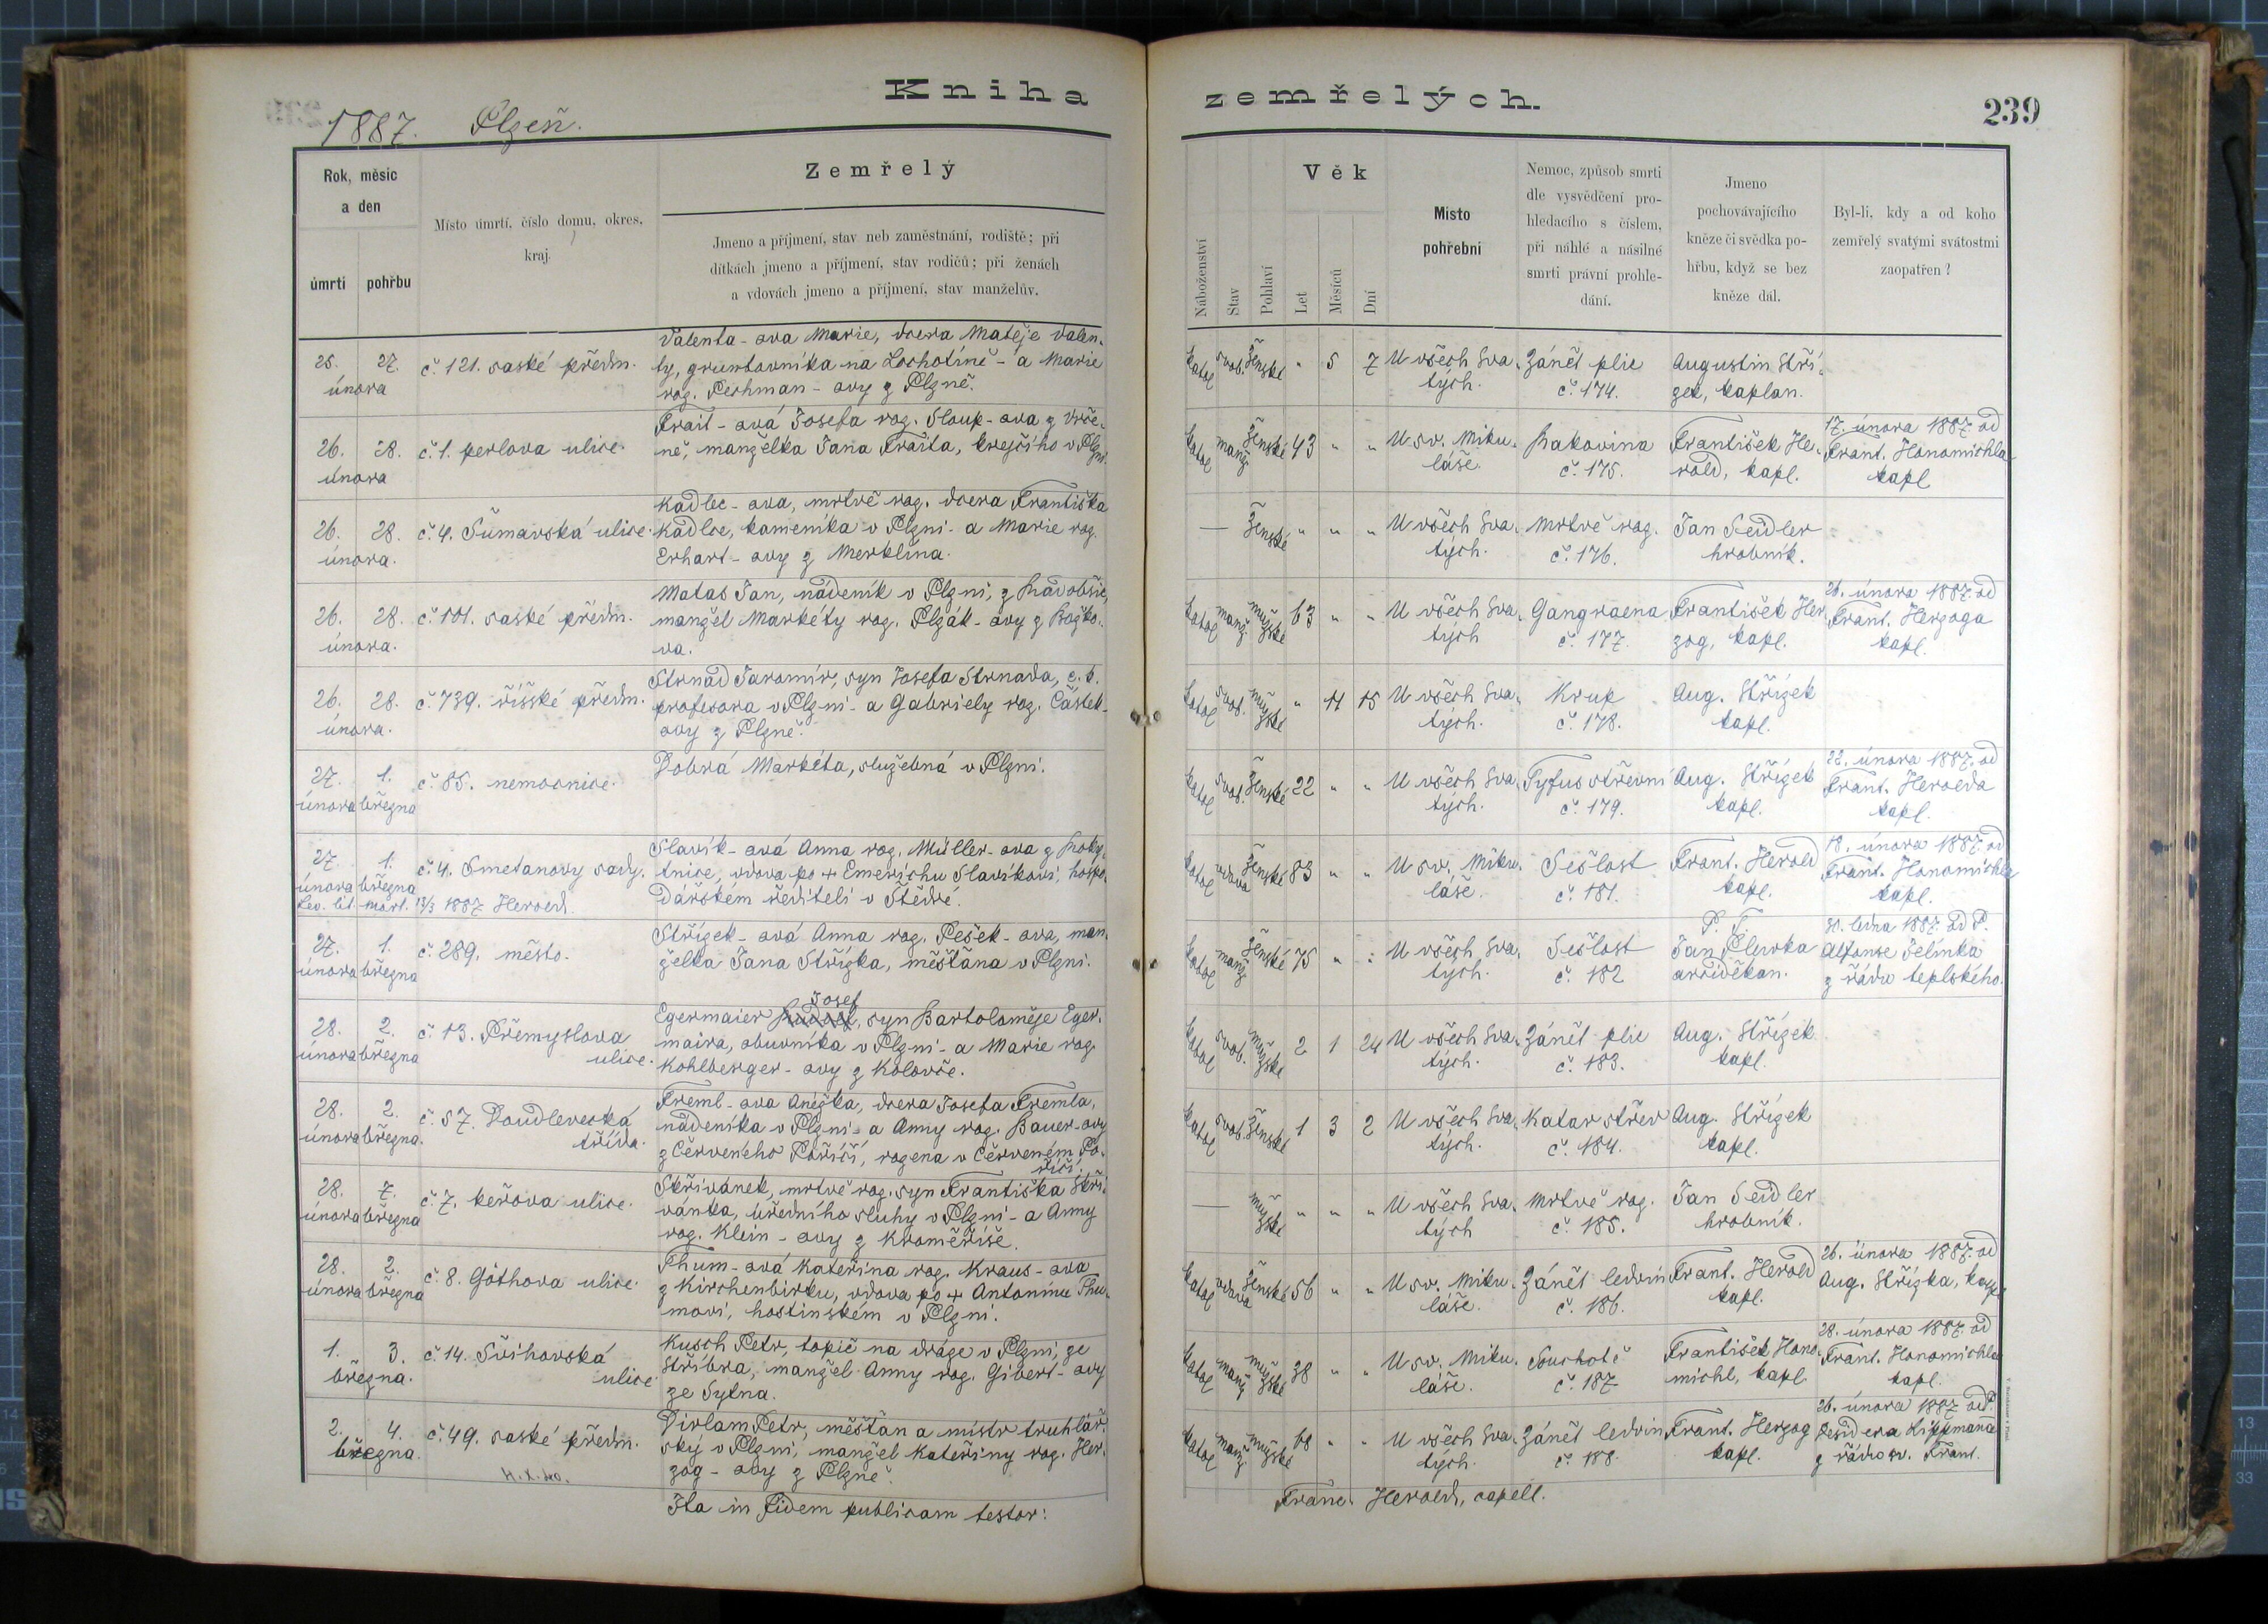 Kniha zemřelých.
239
1887. Plzeň.
Rok, měsíc a den
úmrtí
pohřbu
Místo úmrtí, číslo domu, okres, kraj.
Zemřelý
Jmeno a příjmení, stav neb zaměstnání, rodiště; při
dítkách jmeno a příjmení, stav rodičů; při ženách
a vdovách jmeno a příjmení, stav manželův.
Náboženství
Stav
Pohlaví
Věk
Let
Měsíců
Dní
Místo
pohřební
Nemoc, způsob smrti
dle vysvědčení pro-
hledacího s číslem,
při náhlé a násilné
smrti právní prohle-
dání.
Jmeno
pochovávajícího
kněze či svědka po-
hřbu, když se bez
kněze dál.
Byl-li, kdy a od koho
zemřelý svatými svátostmi
zaopatřen?
25. 27.
února
č. 121. saské předm.
Valenta-ova Marie, dcera Matěje Valen-
ty, gruntovníka na Lochotíně - a Marie
roz. Pechman-ovy z Plzně.
katol svob. ženské " 5 7
U všech Sva-
tých.
Zánět plic
č. 174.
Augustin Stří-
zek, kaplan.
26. 28.
února
č. 1. perlova ulice.
Frait-ová Josefa roz. Sloup-ova z Vrče-
ně, manželka Jana Fraita, krejčího v Plzni.
katol manž ženské 43 " "
U sv. Miku-
láše.
Rakovina
č. 175.
František He-
rold, kapl.
17. února 1887 od
Frant. Honomichla
kapl
26. 28.
února.
č. 4. Šumavská ulice.
Kadlec-ova, mrtvě roz. dcera Františka
Kadlce, kameníka v Plzni - a Marie roz.
Erhart-ovy z Merklína.
— ženské " " "
U všech Sva-
tých.
Mrtvě roz.
č. 176.
Jan Seidler
hrobník.
26. 28.
února.
č. 101. saské předm.
Matas Jan, nádeník v Plzni, z Radobčic,
manžel Markéty roz. Plzák-ovy z Božko-
va.
katol manž mužské 63 " "
U všech Sva-
tých
Gangraena
č. 177.
František Her-
zog, kapl.
26. února 1887 od
Frant. Herzoga
kapl.
26. 28.
února.
č. 739. říšské předm.
Strnad Jaromír, syn Josefa Strnada, c. k.
profesora v Plzni - a Gabriely roz. Částek-
ovy z Plzně.
katol svob. mužské " 11 15
U všech Sva-
tých.
Krup
č. 178.
Aug. Střízek
kapl.
27. 1.
února března
č. 85. nemocnice.
Dobrá Markéta, služebná v Plzni.
katol svob. ženské 22 " "
U všech Sva-
tých.
Tyfus střevní
č. 179.
Aug. Střízek
kapl.
22. února 1887. od
Frant. Herolda
kapl.
27. 1.
února března
č. 4. Smetanovy sady.
Lev. lit. mort. 13/3 1887 Herold.
Slavík-ová Anna roz. Müller-ova z Roky-
tnice, vdova po + Emerichu Slavíkovi, hospo-
dářském řediteli v Štědré.
katol vdova ženské 83 " "
U sv. Miku-
láše.
Sešlost
č. 181.
Frant. Herold
kapl.
18. února 1887 od
Frant. Honomichla
kapl.
27. 1.
února března
č. 289. město.
Střízek-ová Anna roz. Pešek-ova, man-
želka Jana Střízka, měšťana v Plzni.
katol manž ženské 75 " "
U všech Sva-
tých.
Sešlost
č. 182
P. T.
Jan Plewka
arciděkan.
30. ledna 1887 od P.
Alfonse Jelínka
z řádu teplského.
28. 2.
února března
č. 13. Přemyslova
ulice.
Josef
Egermaier, syn Bartoloměje Eger-
maira, obuvníka v Plzni - a Marie roz.
Kohlberger-ovy z Kolovče.
katol svob. mužské 2 1 24
U všech Sva-
tých.
Zánět plic
č. 183.
Aug. Střízek
kapl.
28. 2.
února března.
č. 57. Doudlevecká
třída.
Freml-ova Anežka, dcera Josefa Fremla,
nádeníka v Plzni - a Anny roz. Bauer-ovy
z Červeného Poříčí, rozena v Červeném Po-
říčí.
katol svob. ženské 1 3 2
U všech Sva-
tých.
Katar střev
č. 184.
Aug. Střízek
kapl.
28. 7.
února března
č. 7. keřova ulice.
Skřivánek, mrtvě roz. syn Františka Skři-
vánka, úředního sluhy v Plzni - a Anny
roz. Klein-ovy z Kroměříše.
— mužské " " "
U všech Sva-
tých
Mrtvě roz.
č. 185.
Jan Seidler
hrobník.
28. 2.
února března
č. 8. Göthova ulice.
Thum-ová Kateřina roz. Kraus-ova
z Kirchenbirku, vdova po + Antonínu Thu-
movi, hostinském v Plzni.
katol vdova ženské 56 " "
U sv. Miku-
láše.
Zánět ledvin
č. 186.
Frant. Herold
kapl.
26. února 1887. od
Aug. Střízka, kapl
1. 3.
března.
č. 14. Švihovská
ulice.
Kusch Petr, topič na dráze v Plzni, ze
Stříbra, manžel Anny roz. Gibert-ovy
ze Sytna.
katol manž mužské 38 " "
U sv. Miku-
láše.
Souchotě
č. 187
František Hono-
michl, kapl.
28. února 1887. od
Frant. Honomichla
kapl.
2. 4.
března.
č. 49. saské předm.
4. X. 40.
Virlam Petr, měšťan a mistr truhlář-
ský v Plzni, manžel Kateřiny roz. Her-
zog-ovy z Plzně.
katol manž. mužské 68 " "
U všech Sva-
tých.
Zánět ledvin
č. 188.
Frant. Herzog
kapl.
26. února 1887 od P.
Desidera Lippmanna
z řádu sv. Frant.
Ita in fidem publicam testor:
Franc. Herold, capell.